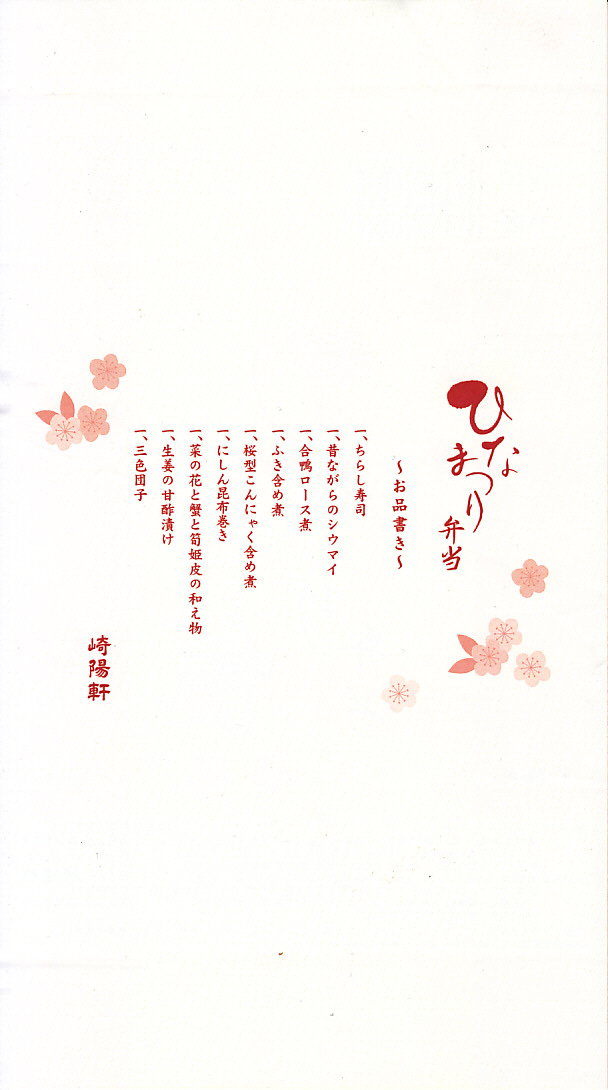 ひなまつり弁当
～お品書き～
一、ちらし寿司
一、昔ながらのシウマイ
一、合鴨ロース煮
一、ふき含め煮
一、桜型こんにゃく含め煮
一、にしん昆布巻き
一、菜の花と蟹と筍姫皮の和え物
一、生姜の甘酢漬け
一、三色団子
崎陽軒